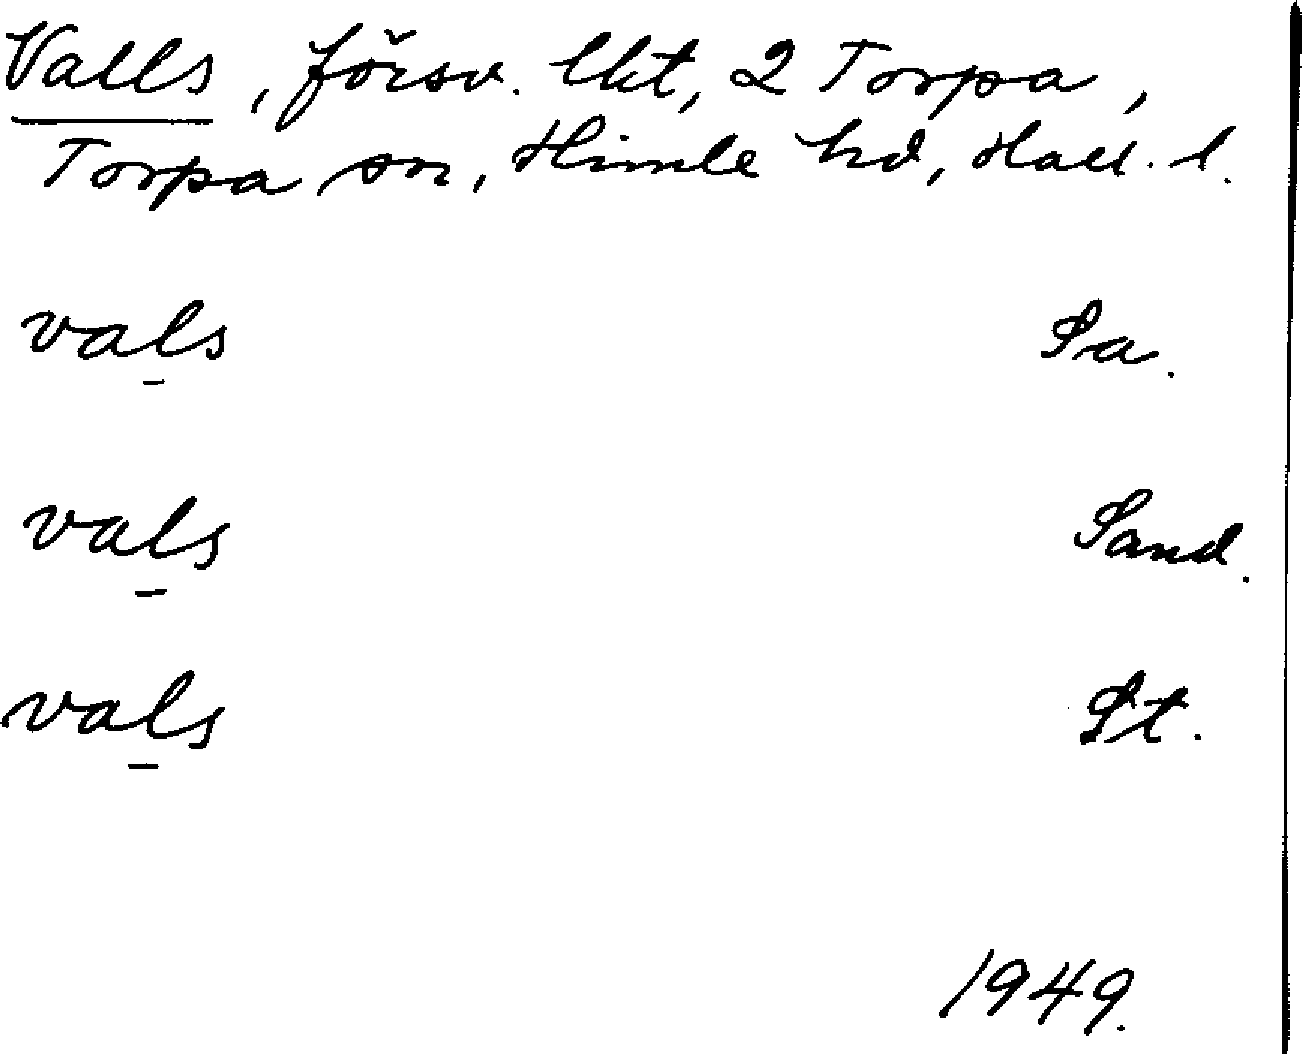 Valls, försv. lht, 2 Torpa,
Torpa sn, Himle hd, Hall. l.
vals Sa.
vals Sand.
vals St.
1949.